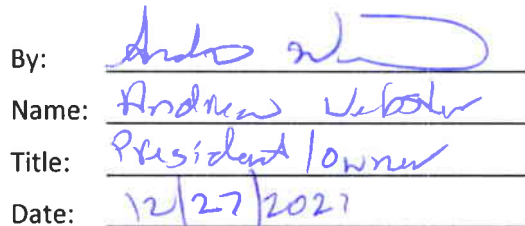 By:
Name: Andrew Webster
Title: President/Owner
Date: 12/27/2021